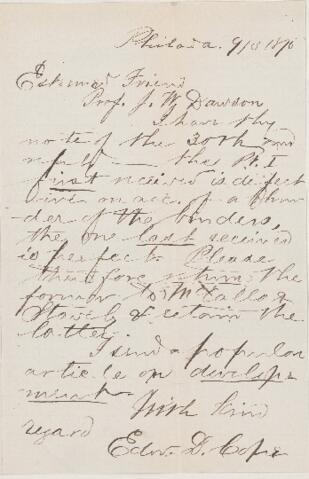 Philada. 9/3 1870
Esteemed Friend
Prof. J. W. Dawson
I have thy
note of the 30th and
reply — the Pt. I
first received is defect
ive on acc. of a blun
der of the binders,
the one last received
is perfect. Please
therefore return the
former to McCalla &
Stavely & retain the
latter.
I send a popular
article on develope
ment.
With kind
regard
Edw. D. Cope